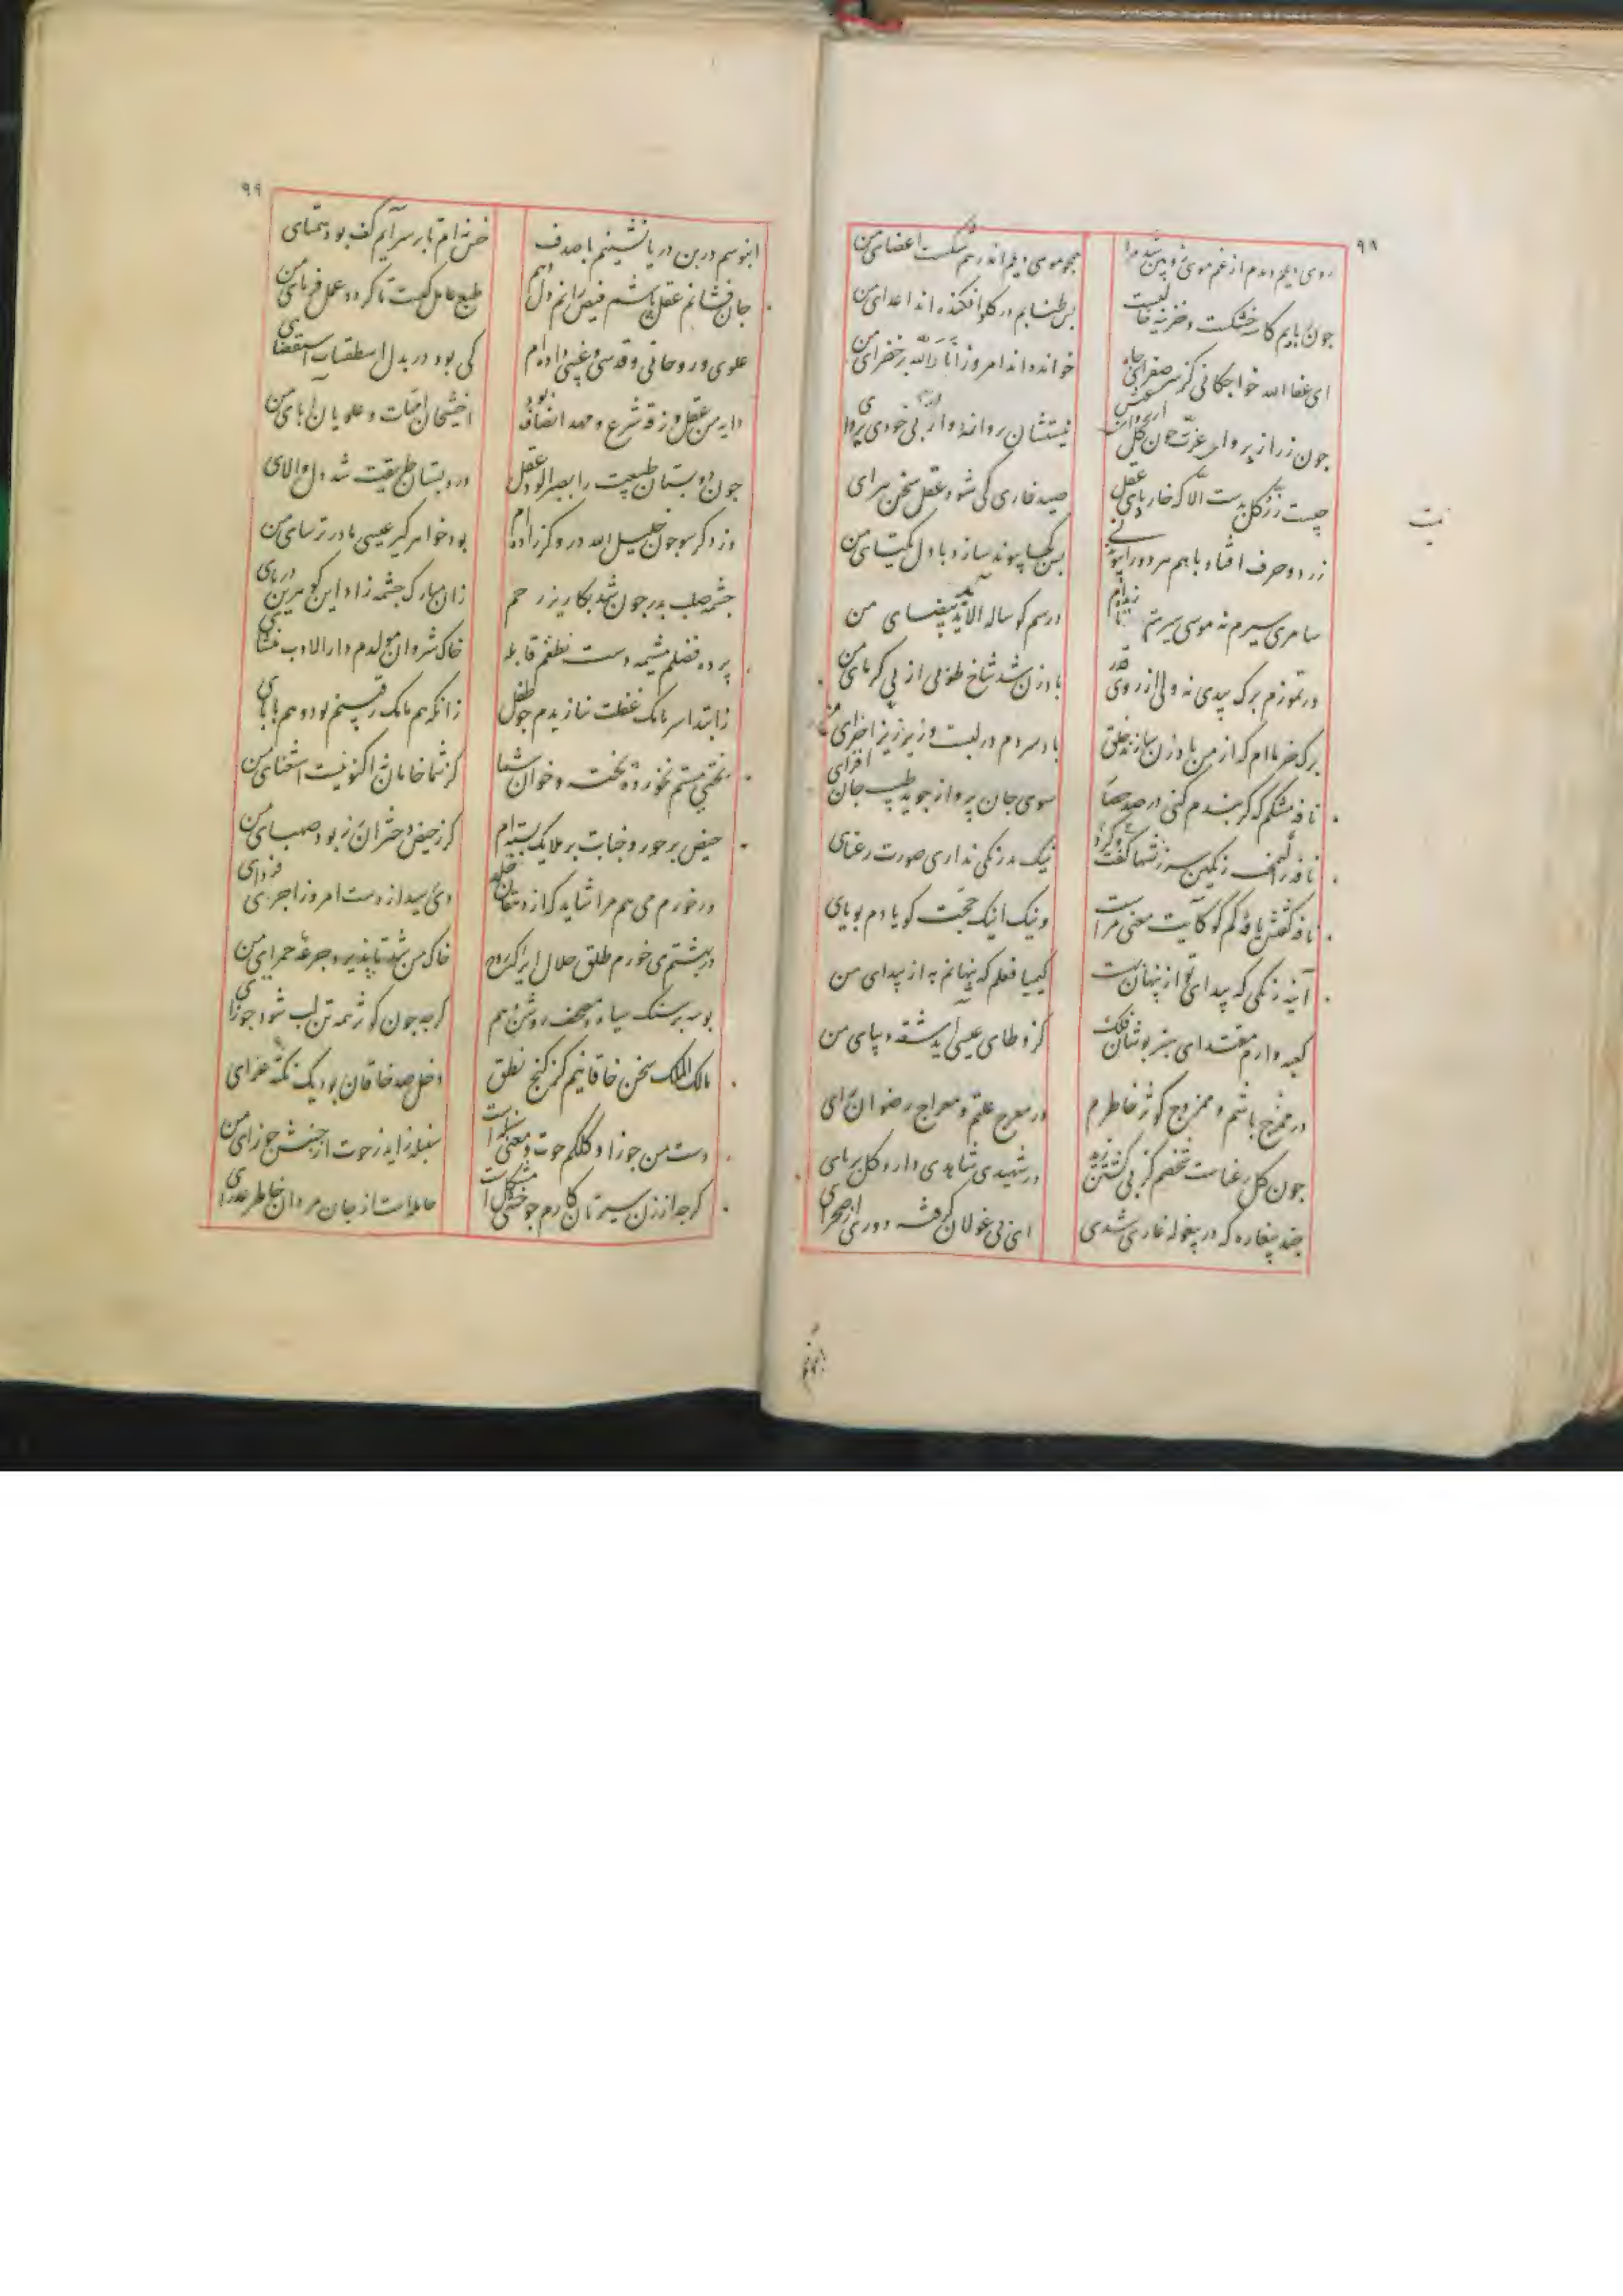 ۹۸
روی دیلم دیدم از غم موی زوبین شد مرا همچو موی دیلم اندر هم شکست اعضای من
چون ربابم کاسه خشکست و خزینه خالیست پس طنابم در کلو افکنده اند اعدای من
ای عفا الله خواجکانی کز سر صفرای جاه خوانده اند امروز اباد الله بر خضرای من
چون زر از پروای عزت چون کل نیستشان پروانه وار از بی خودی پروای
چیست زر کل بدست الا که خار پای عقل صید خاری کی شود عقل سخن سرای
زر دو حرف افتاد با هم هر دو را پیوند نی پس کجا پیوند سازد با دل یکتای من
سامری سیرم نه موسی سیرت ار تا زنده ام در سم کوساله الاید ید بیضای من
در تموزم برک بیدی نه ولی از روی قدر بادزن شد شاخ طوبی از پی کرمای من
برک خرماام که از من بادزن سازند خلق باد سردم در لبست و ریز ریز اجزای من
نافه مشکم که کر بندم کنی در صد حصار سوی جان پرواز جوید طیب جان افزای
نافه را کیمخت رنکین سرزنشها کرد و کفت نیک بد رنکی نداری صورت رعنای
نافه کفتش یافه کم کو کآیت معنی مراست وینک اینک حجت کویا دم بویای
آینه رنکی که پیدای تو از پنهان بهست کیمیا فعلم که پنهانم به از پیدای من
کعبه وارم مقتدای سبز پوشان فلک کز وطای عیسی آید شقه دیبای من
در ممزج باشم و ممزوج کوثر خاطرم در معرج غلتم و معراج رضوان رای
چون کل رعناست شخصم کز پی کشتن زید در شهیدی شاهدی دارد کل بربای
چند بیغاره که در بیغوله غاری شدی ای پی غولان کرفته دوری از صحرای
۹۹
ابنوسم در بن دریا نشینم با صدف خس نه ام تا بر سر آیم کف بود همتای
جان فشانم عقل پاشم فیض رانم دل دهم طبع عامل کیست تا کردد عمل فرمای من
علوی و روحانی و قدسی و غیبی زاده ام کی بود در بدل اسطقسات استقصای
دایه من عقل و زقه شرع و مهد انصاف بود اخشیجان امهات و علویان آبای من
چون دبستان طبیعت را بصر آلود عقل در دبستان طریقت شد دل والای
ور دکر سو چون خلیل الله دروکر زاده ام بود خواهر کیر عیسی مادر ترسای من
چشمه صلب پدر چون شد بکاریز رحم زان مبارک چشمه زاد این کوهر دریای
پرده فضلم مشیمه دست نطقم قابله خاک شروان مولدم دار الادب منشای
زابتدا سرمامک غفلت نبازیدم چو طفل زانکه هم مامک رقیبم بود و هم بابای
بختی مستم نخورده پخته و خوان شما کز شما خامان نه اکنونیست استغنای من
حیض بر حور و جنابت بر ملایک بسته ام کر ز حیض دختران رز بود صهبای من
ور خورم می هم مرا شاید که از دهقان خلد دی رسید از دست امروز اجری فردای
در بهشتم می خورم طلق حلال ایرا که روح خاک من شد تا پذیرد جرعه حمرای من
بوسه بر سنک سیاه و مصحف روشن دهم کرچه چون کوثر همه تن لب شود جوزای
مالک الملک سخن خاقانیم کز کنج نطق دخل صد خاقان بود یک نکته غرای
دست من جوزا و کلکم حوت و معنی سنبله است سنبله زاید ز حوت از جنبش جوزای من
کرچه از زن سیرتان کارم چو خنثی مشکل است حامله است از جان مردان خاطر عذرای